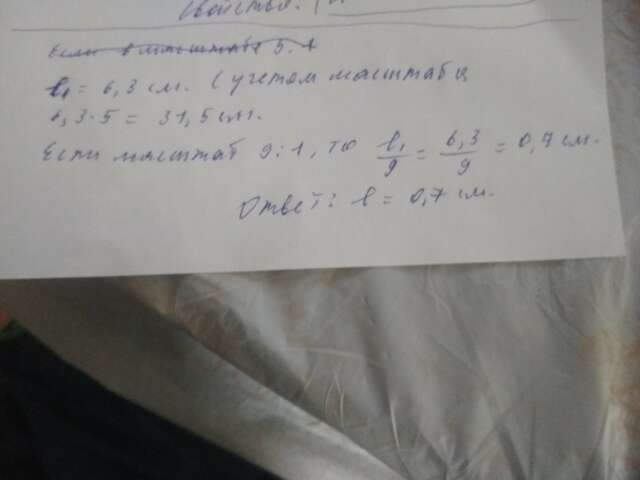 Свойство.
Если в масштабе 5:1
l₁ = 6,3 см. С учетом масштаба
6,3·5 = 31,5 см.
Если масштаб 9:1, то l₁/9 = 6,3/9 = 0,7 см.
Ответ: l = 0,7 см.